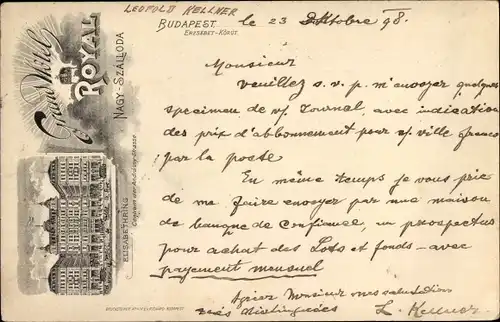 LEOPOLD KELLNER
BUDAPEST
ERZSÉBET-KÖRÚT.
le 23 Oktobre 98.
Grand Hôtel
ROYAL
NAGY-SZÁLLODA
ELISABETHRING
Monsieur
Veuillez s. v. p. m'envoyer quelques
specimen de v/ Journal, avec indication
des prix d'abbonnement pour v/ ville franco
par la poste
En même temps je vous prie
de me faire envoyer par une maison
de banque de Confiance, un prospectus
pour achat des Lots et fonds – avec
payement mensuel
Agréez Monsieur mes salutations
très distinguées L. Kellner